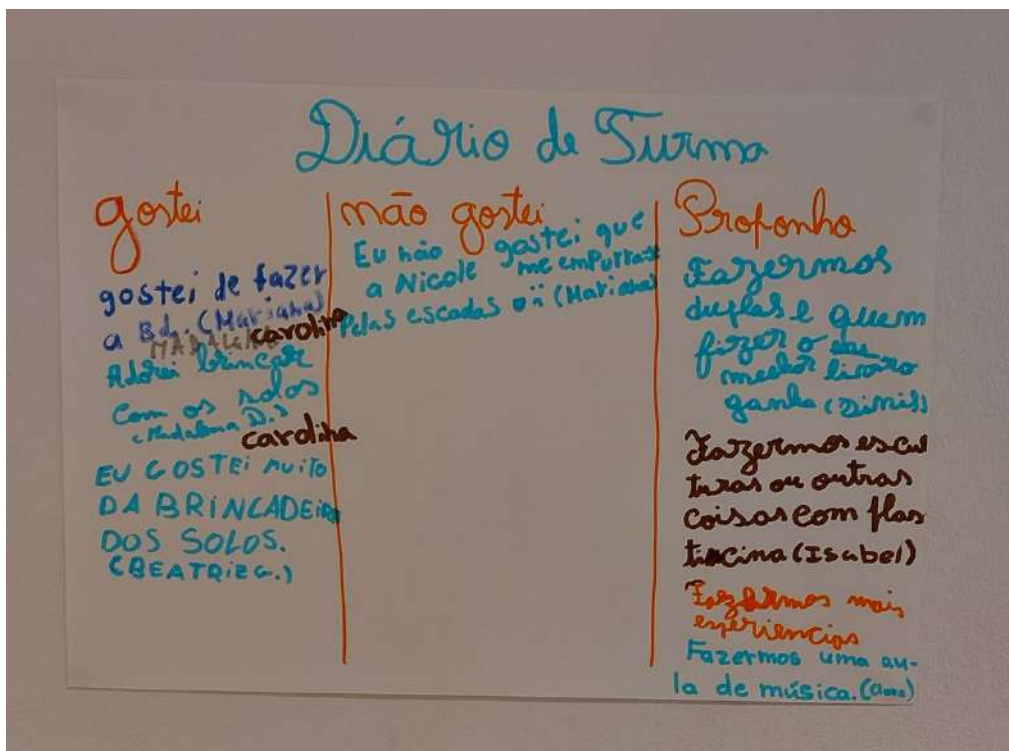 Diário de Turma
gostei
gostei de fazer
a Bd. (Mariana)
MADALENA carolina
Adorei brincar
com os solos
(Madalena D.)
carolina
EU GOSTEI MUITO
DA BRINCADEIRA
DOS SOLOS.
(BEATRIZ G.)
não gostei
Eu não gostei que
a Nicole me empurrasse
pelas escadas (Mariana)
Proponho
Fazermos
duplas e quem
fizer o
melhor livro
ganha (Dinis)
Fazermos escul
turas ou outras
coisas com plas
ticina (Isabel)
Fazermos mais
experiencias
Fazermos uma au-
la de música. (Clara)